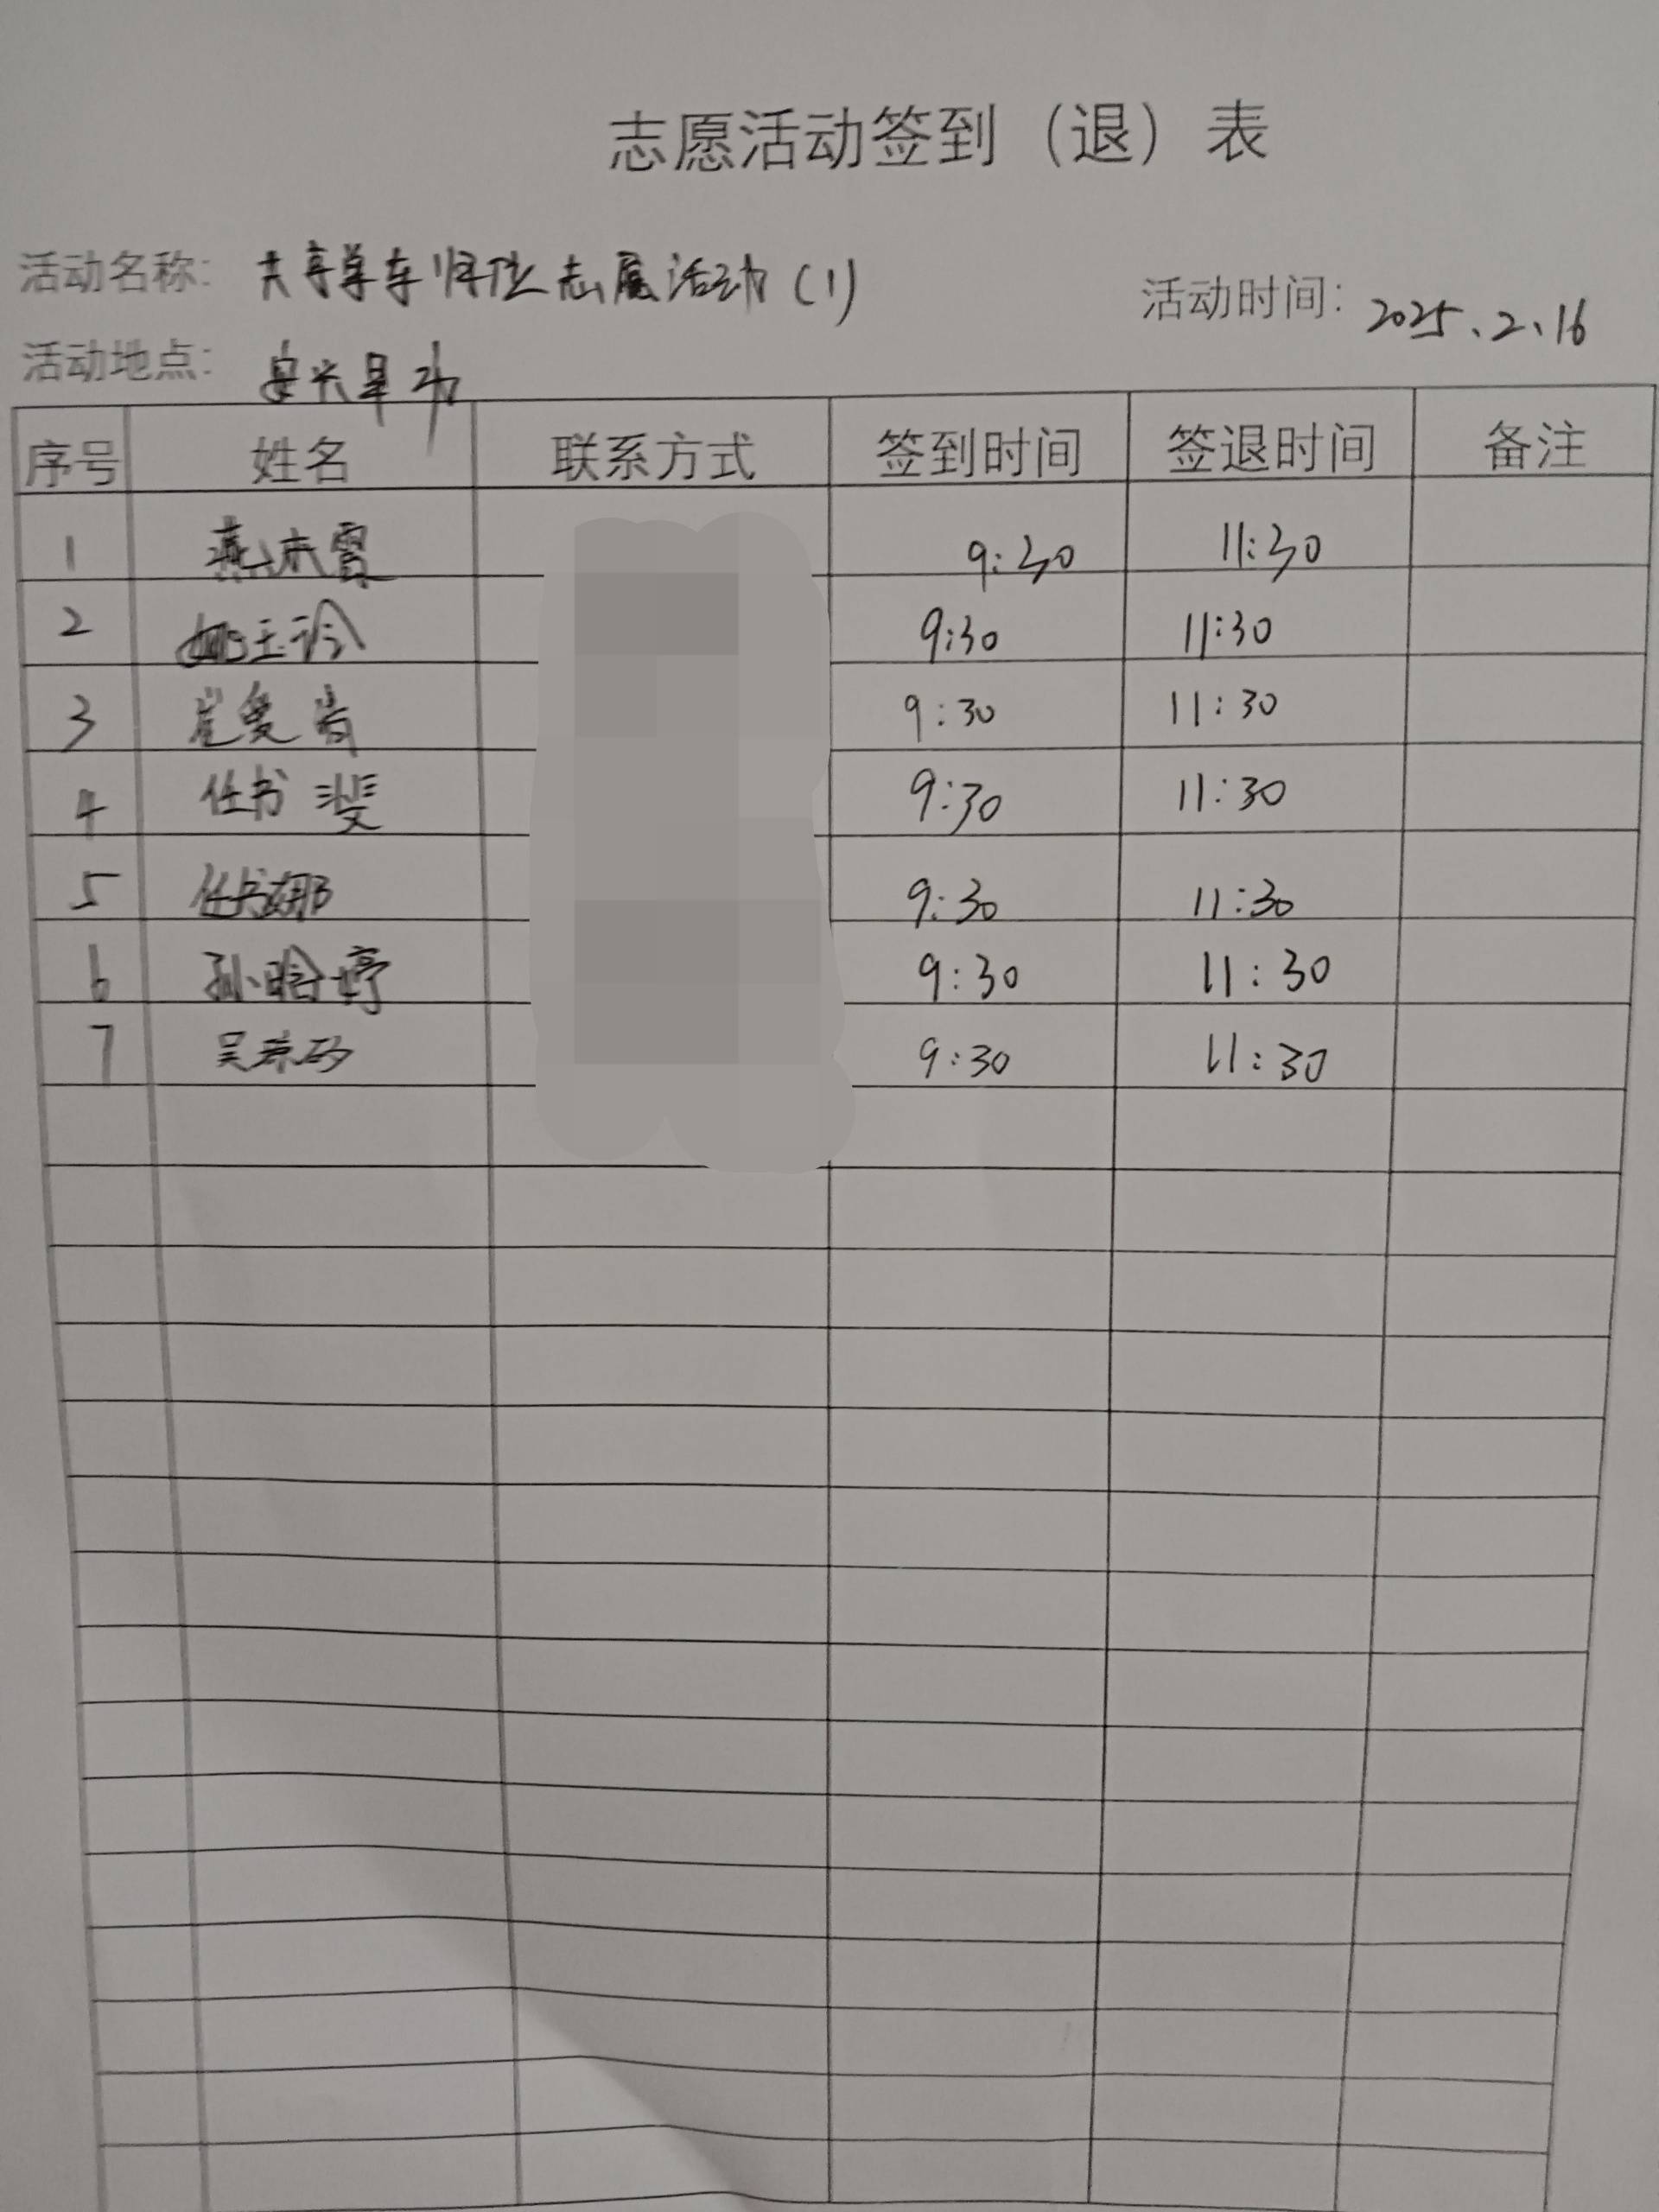 志愿活动签到（退）表
活动名称: 共享单车归位志愿活动(1)
活动时间: 2025.2.16
活动地点:
序号 姓名 联系方式 签到时间 签退时间 备注
1 9:30 11:30
2 9:30 11:30
3 崔爱 9:30 11:30
4 任书斐 9:30 11:30
5 任书娜 9:30 11:30
6 孙晗婷 9:30 11:30
7 吴 9:30 11:30